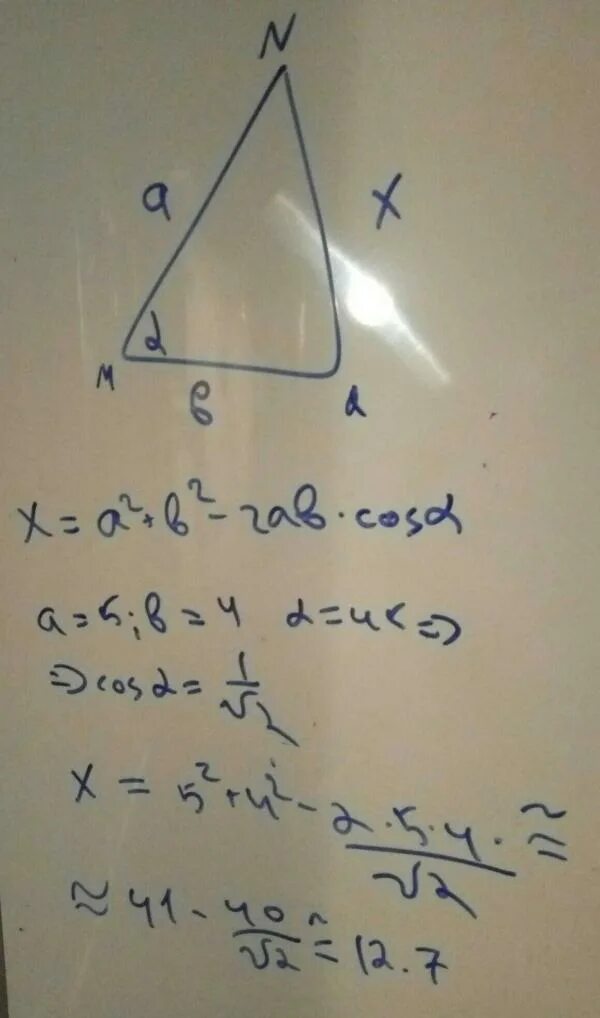 N
a
x
α
M
в
L
x = a² + в² - 2aв · cosα
a = 5; в = 4 α = 45 =>
=> cosα = 1/√2
x = 5² + 4² - 2·5·4·/√2 ≅
≈ 41 - 40/√2 ≅ 12.7